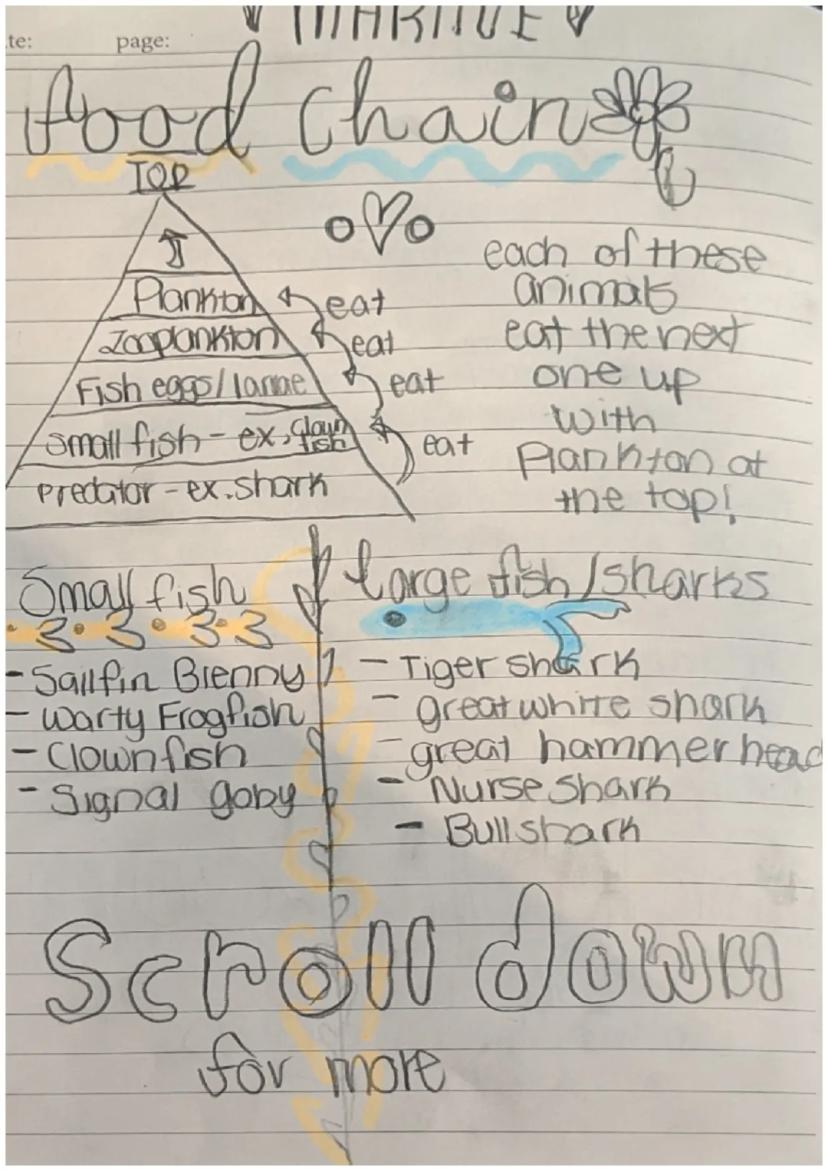 MARINE
te: page:
food chain
TOP
Plankton
Zooplankton
Fish eggs/larvae
Small fish - ex. clown
fish
predator - ex. shark
eat
eat
eat
eat
each of these
animals
eat the next
one up
with
Plankton at
the top!
Small fish
- Sailfin Blenny
- Warty Frogfish
- Clownfish
- Signal goby
large fish/sharks
- Tiger shark
- great white shark
- great hammerhead
- Nurse shark
- Bull shark
Scroll down
for more